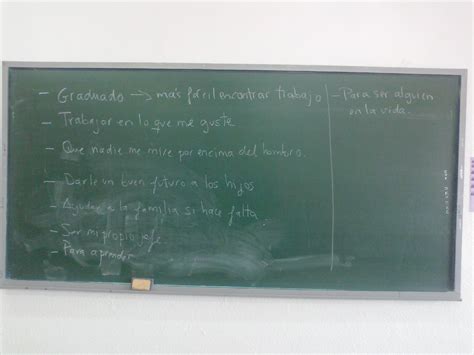 - Graduado → más fácil encontrar trabajo
- Trabajar en lo que me guste
- Que nadie me mire por encima del hombro.
- Darle un buen futuro a los hijos
- Ayudar a la familia si hace falta
- Ser mi propio jefe
- Para aprender
- Para ser alguien
en la vida.